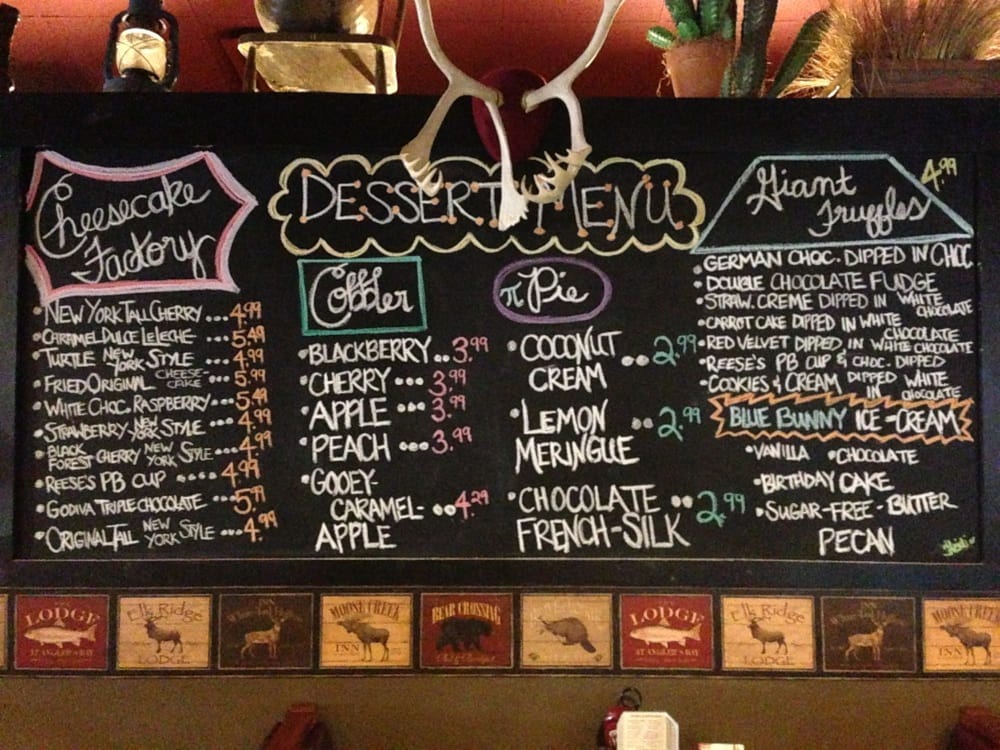 Cheesecake
Factory
• NEW YORK TALL CHERRY ... 4.99
• CARAMEL DULCE LE LECHE ... 5.49
• TURTLE NEW YORK STYLE ... 4.99
• FRIED ORIGINAL CHEESE-CAKE ... 5.99
• WHITE CHOC. RASPBERRY ... 5.49
• STRAWBERRY NEW YORK STYLE ... 4.99
• BLACK FOREST CHERRY NEW YORK STYLE ... 4.99
• REESE'S PB CUP ..... 4.99
• GODIVA TRIPLE CHOCOLATE ... 5.99
• ORIGINAL TALL NEW YORK STYLE ... 4.99
DESSERT MENU
Cobbler
• BLACKBERRY .. 3.99
• CHERRY ... 3.99
• APPLE ... 3.99
• PEACH ... 3.99
• GOOEY-
CARAMEL- .. 4.29
APPLE
π Pie
• COCONUT .. 2.99
CREAM
• LEMON .. 2.99
MERINGUE
• CHOCOLATE .. 2.99
FRENCH-SILK
Giant 4.99
Truffles
• GERMAN CHOC. DIPPED IN CHOC
• DOUBLE CHOCOLATE FUDGE
• STRAW. CREME DIPPED IN WHITE CHOCOLATE
• CARROT CAKE DIPPED IN WHITE CHOCOLATE
• RED VELVET DIPPED IN WHITE CHOCOLATE
• REESE'S PB CUP & CHOC. DIPPED
• COOKIES & CREAM DIPPED IN WHITE CHOCOLATE
BLUE BUNNY ICE-CREAM
• VANILLA • CHOCOLATE
• BIRTHDAY CAKE
• SUGAR-FREE-BUTTER
PECAN
LODGE
AT ANGLER'S BAY
Elk Ridge
LODGE
MOOSE CREEK
INN
BEAR CROSSING
LODGE
AT ANGLER'S BAY
Elk Ridge
LODGE
MOOSE CREEK
INN